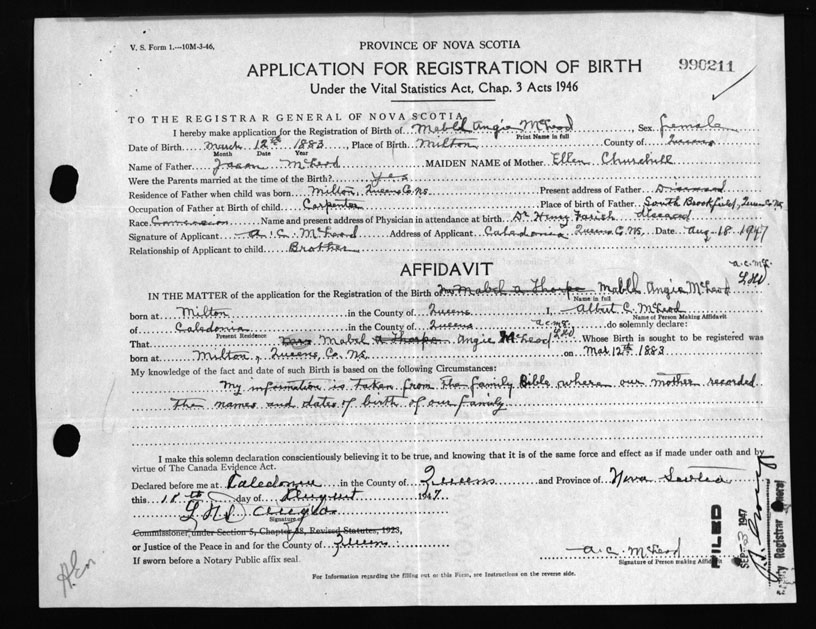 V. S. Form 1.—10M-3-46.
PROVINCE OF NOVA SCOTIA
APPLICATION FOR REGISTRATION OF BIRTH
990211
Under the Vital Statistics Act, Chap. 3 Acts 1946
TO THE REGISTRAR GENERAL OF NOVA SCOTIA
I hereby make application for the Registration of Birth of Mabel Angie McLeod, Sex female
Print Name in full
Date of Birth March 12th 1883, Place of Birth Milton County of Queens
Month Date Year
Name of Father Jason McLeod MAIDEN NAME of Mother Ellen Churchill
Were the Parents married at the time of the Birth? yes
Residence of Father when child was born Milton, Queens Co. N.S. Present address of Father Diseased
Occupation of Father at Birth of child Carpenter Place of birth of Father South Brookfield, Queens Co. N.S.
Race Name and present address of Physician in attendance at birth Dr Henry Farish diseased
Signature of Applicant A. C. McLeod Address of Applicant Caledonia Queens Co. N.S. Date Aug 18 1947
Relationship of Applicant to child Brother
AFFIDAVIT
a.c.m.
IN THE MATTER of the application for the Registration of the Birth of Mabel a Thorpe Mabel Angie McLeod
Name in full
born at Milton in the County of Queens I, Albert C. McLeod
Name of Person Making Affidavit
of Caledonia in the County of Queens do solemnly declare:
Present Residence
That Mabel a Thorpe Angie McLeod Whose Birth is sought to be registered was
born at Milton, Queens, Co. N.S. on Mar 12th 1883
My knowledge of the fact and date of such Birth is based on the following Circumstances:
My information is taken from the family Bible where our mother recorded
the names and dates of birth of our family.
I make this solemn declaration conscientiously believing it to be true, and knowing that it is of the same force and effect as if made under oath and by
virtue of The Canada Evidence Act.
Declared before me at Caledonia in the County of Queens and Province of Nova Scotia
this 18th day of August 1947
Signature
Commissioner, under Section 5, Chapter 38, Revised Statutes, 1923,
or Justice of the Peace in and for the County of Queens
A. C. McLeod
Signature of Person making Affidavit
If sworn before a Notary Public affix seal.
For Information regarding the filling out of this Form, see Instructions on the reverse side.
FILED
SEP 3 1947
Deputy Registrar General